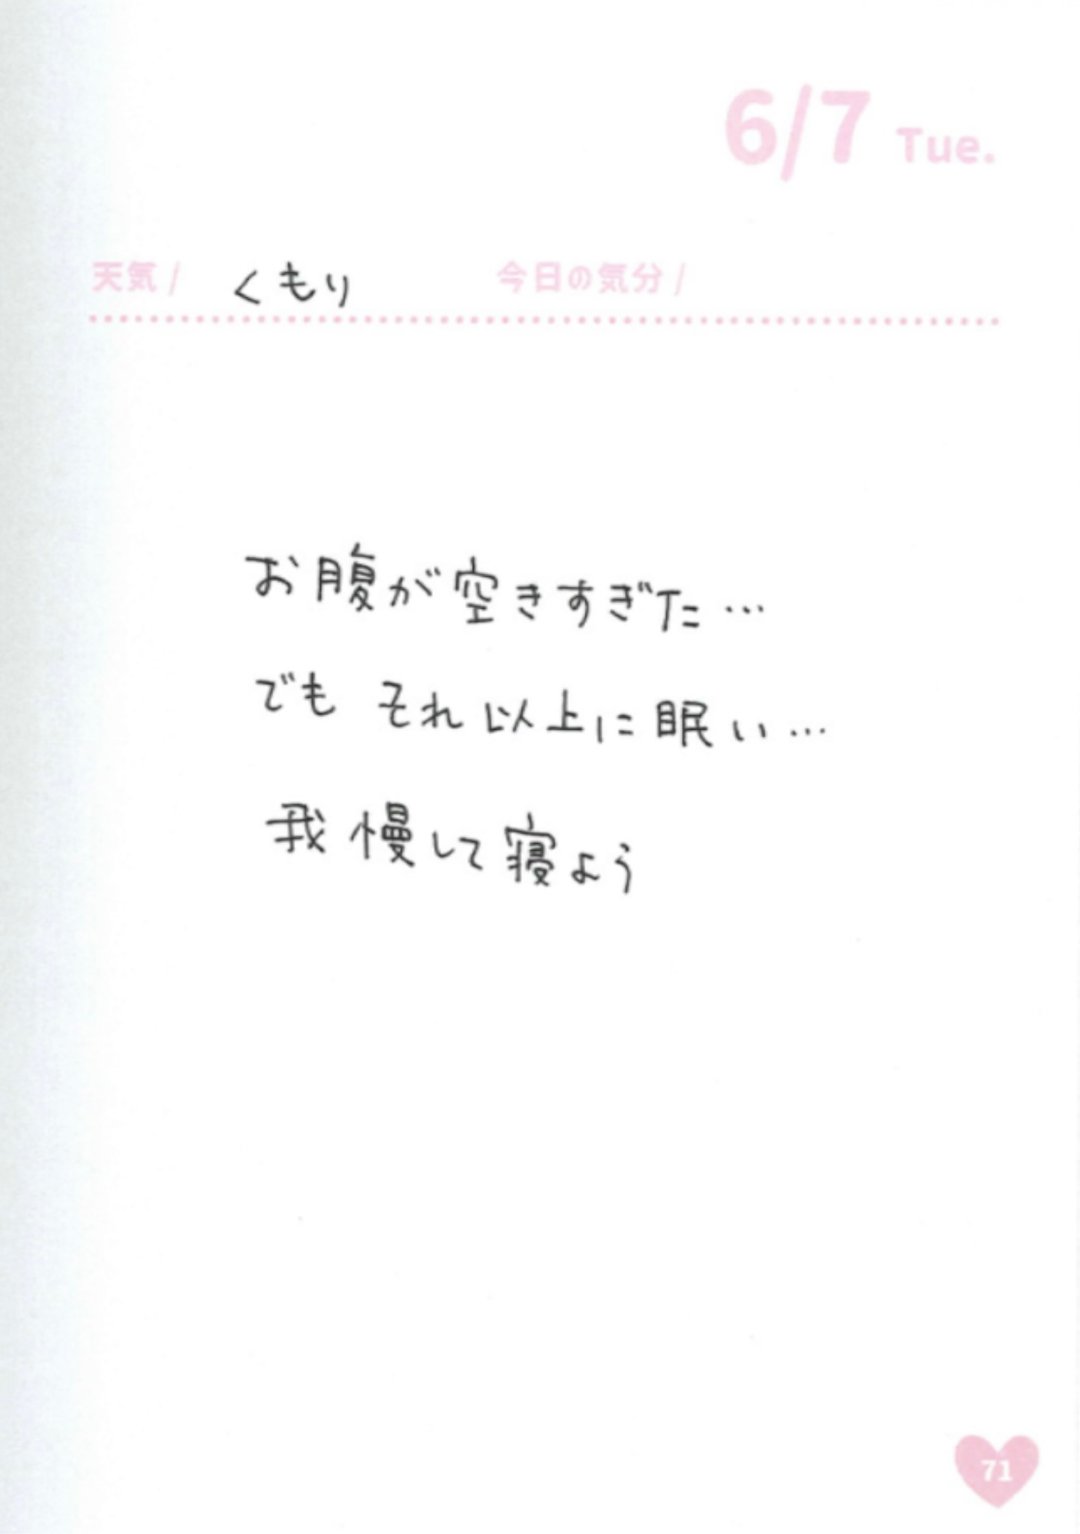 6/7 Tue.
天気/ くもり 今日の気分/
お腹が空きすぎた…
でも それ以上に眠い…
我慢して寝よう
71